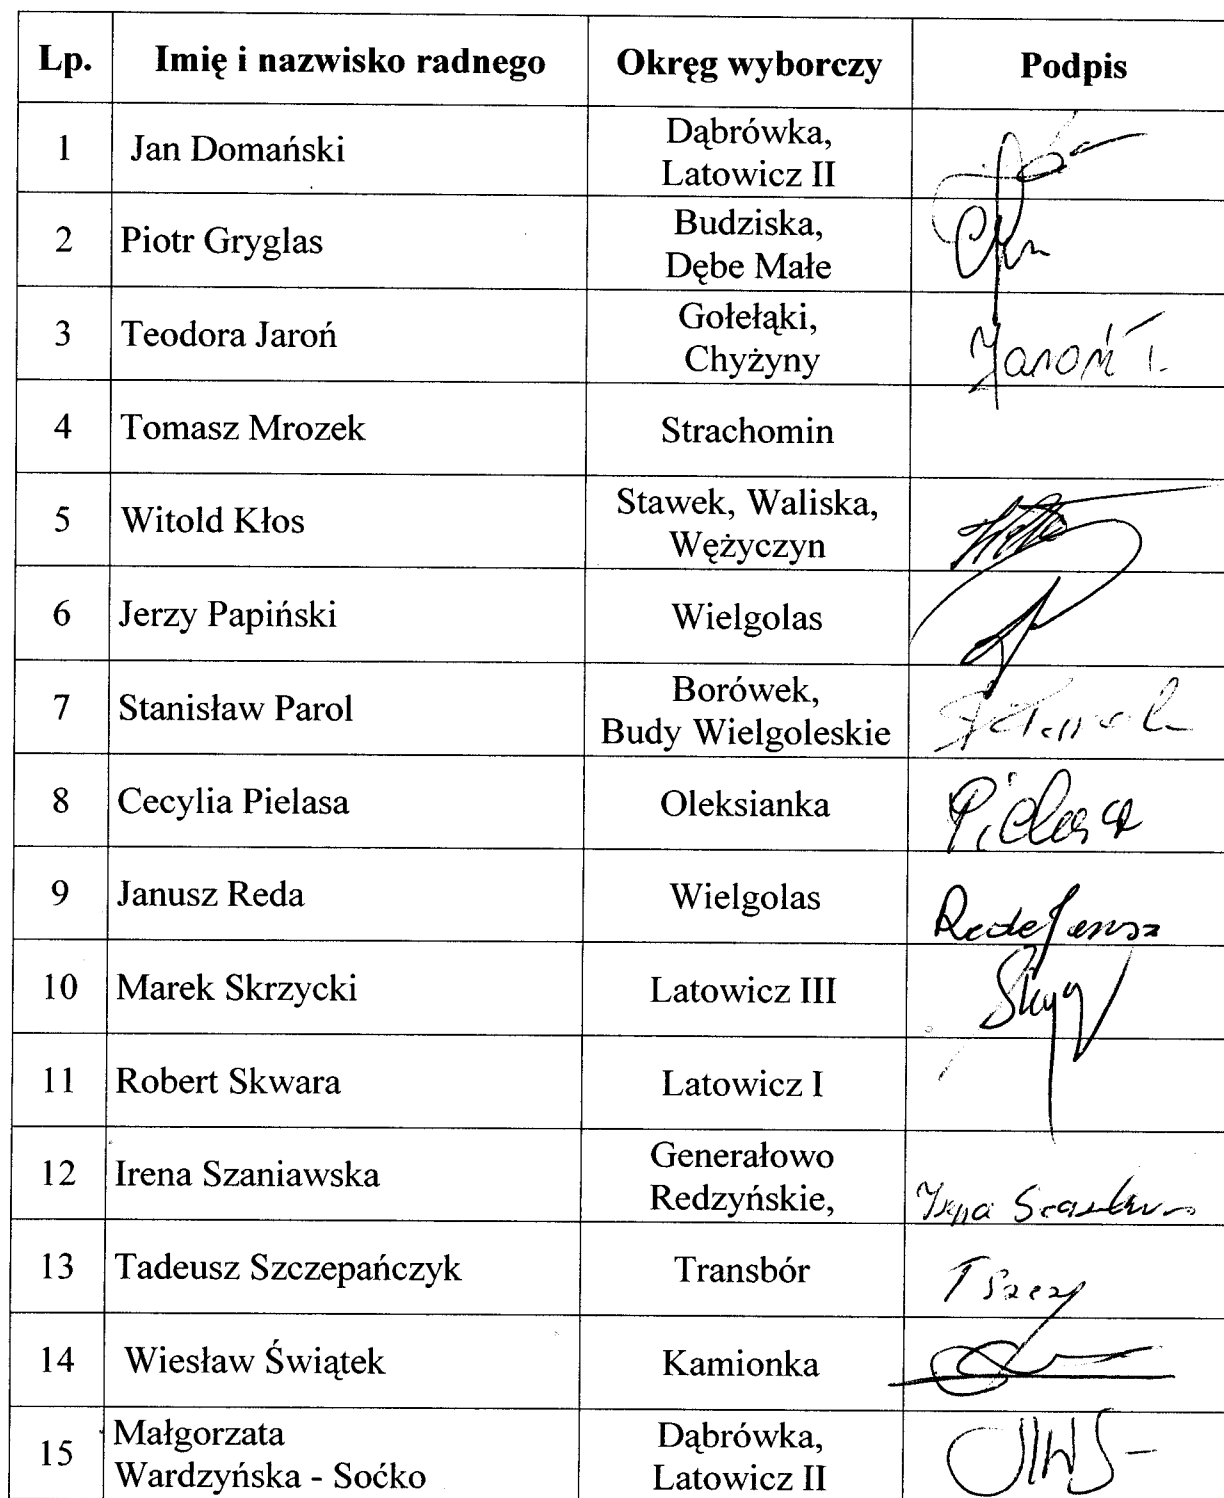 Lp. Imię i nazwisko radnego Okręg wyborczy Podpis
1 Jan Domański Dąbrówka,
Latowicz II
2 Piotr Gryglas Budziska,
Dębe Małe
3 Teodora Jaroń Gołełąki,
Chyżyny Jaroń T.
4 Tomasz Mrozek Strachomin
5 Witold Kłos Stawek, Waliska,
Wężyczyn
6 Jerzy Papiński Wielgolas
7 Stanisław Parol Borówek,
Budy Wielgoleskie
8 Cecylia Pielasa Oleksianka Pielasa
9 Janusz Reda Wielgolas Reda Janusz
10 Marek Skrzycki Latowicz III
11 Robert Skwara Latowicz I
12 Irena Szaniawska Generałowo
Redzyńskie,
13 Tadeusz Szczepańczyk Transbór
14 Wiesław Świątek Kamionka
15 Małgorzata Dąbrówka,
Wardzyńska - Soćko Latowicz II